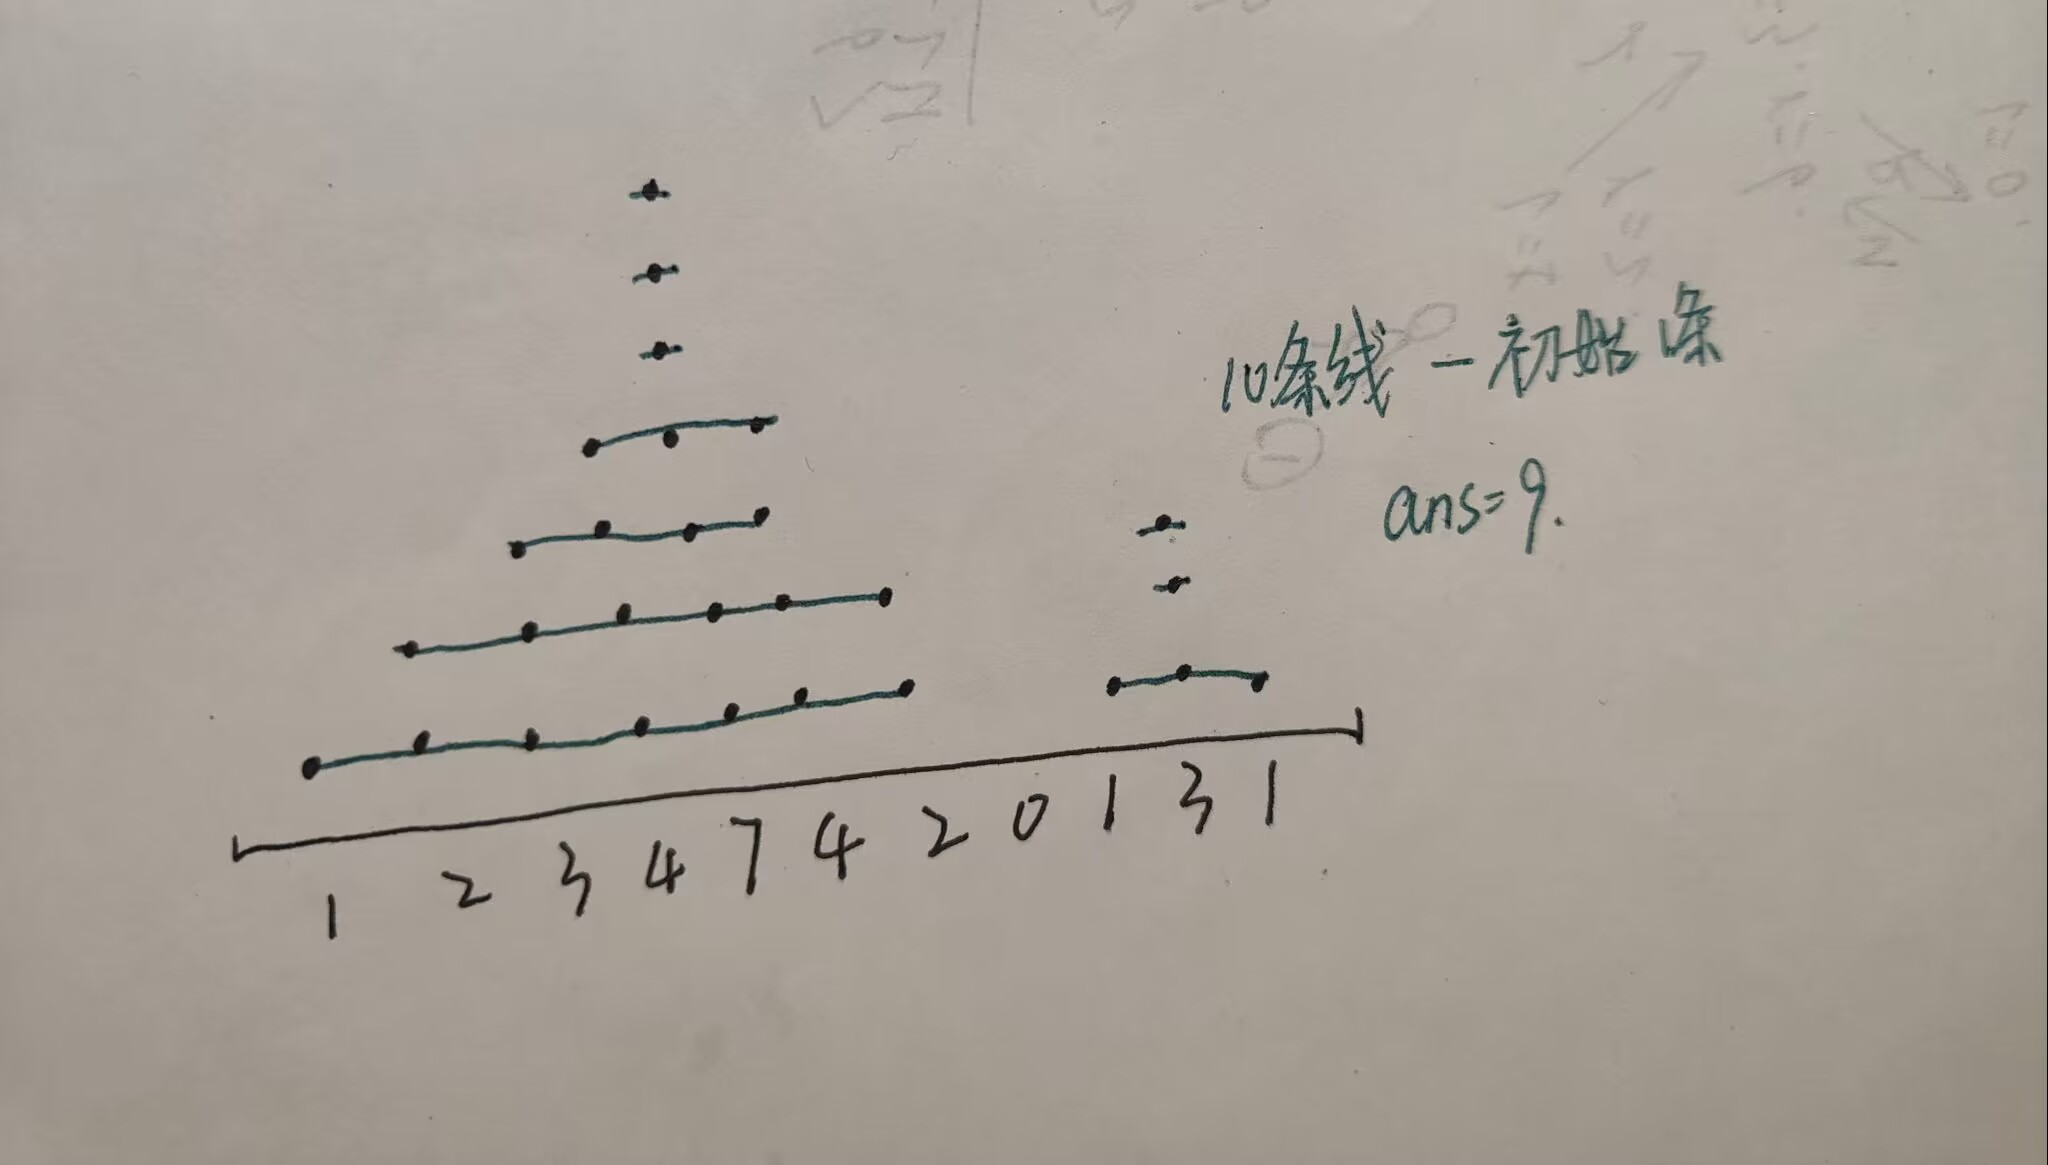 10条线 - 初始条
ans=9.
1 2 3 4 7 4 2 0 1 3 1